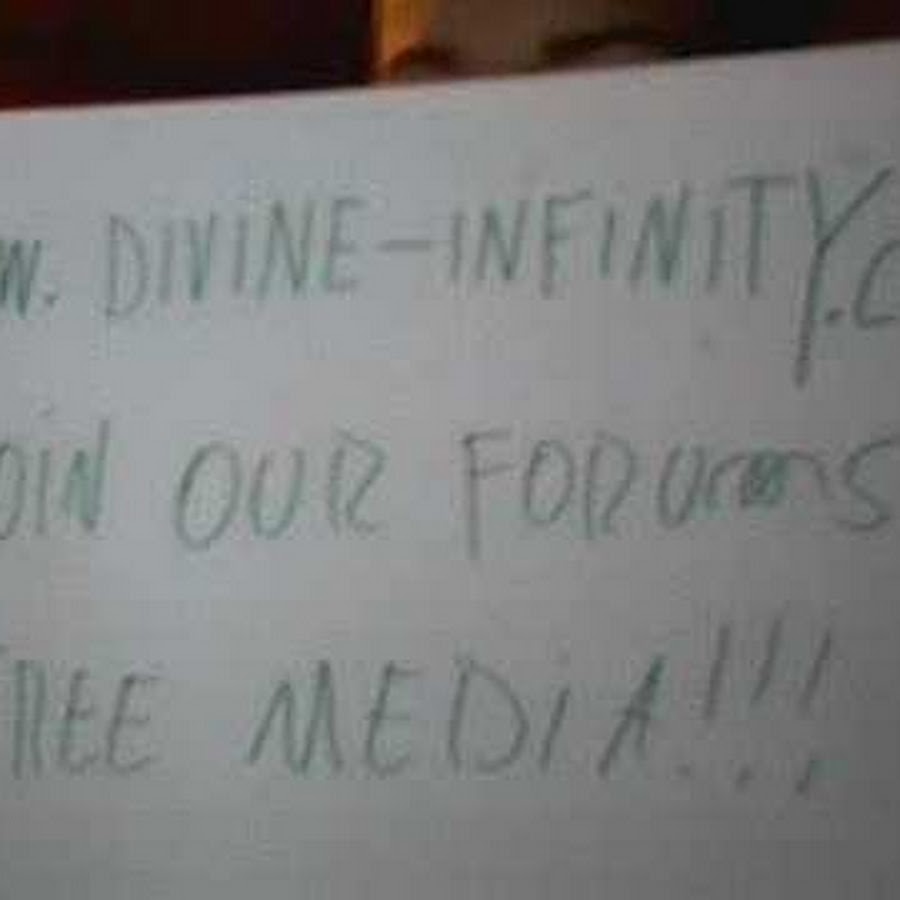 W. DIVINE-INFINITY.C
OIN OUR FORUMS
REE MEDIA!!!